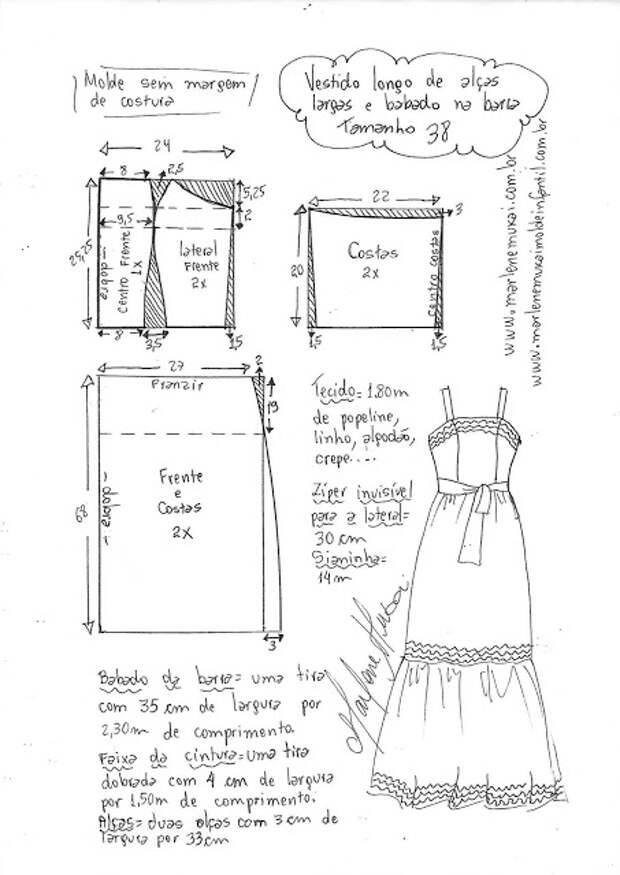 Molde sem margem
de costura
Vestido longo de alças
largas e babado na barra
Tamanho 38
www.marlenemukai.com.br
www.marlenemukaimoldeinfantil.com.br
24
8
2,5
5,25
2
9,5
25,25
dobra
Centro Frente
1x
lateral
Frente
2x
8
3,5
1,5
22
3
20
Costas
2x
Centro costas
1,5
1,5
27
2
Franzir
19
68
dobra
Frente
e
Costas
2x
3
Tecido= 1.80m
de popeline,
linho, algodão,
crepe....
Zíper invisível
para a lateral=
30 cm
Sianinha=
14m
Marlene Mukai
Babado da barra= uma tira
com 35 cm de largura por
2,30m de comprimento.
Faixa da cintura=uma tira
dobrada com 4 cm de largura
por 1,50m de comprimento.
Alças= duas alças com 3 cm de
largura por 33cm